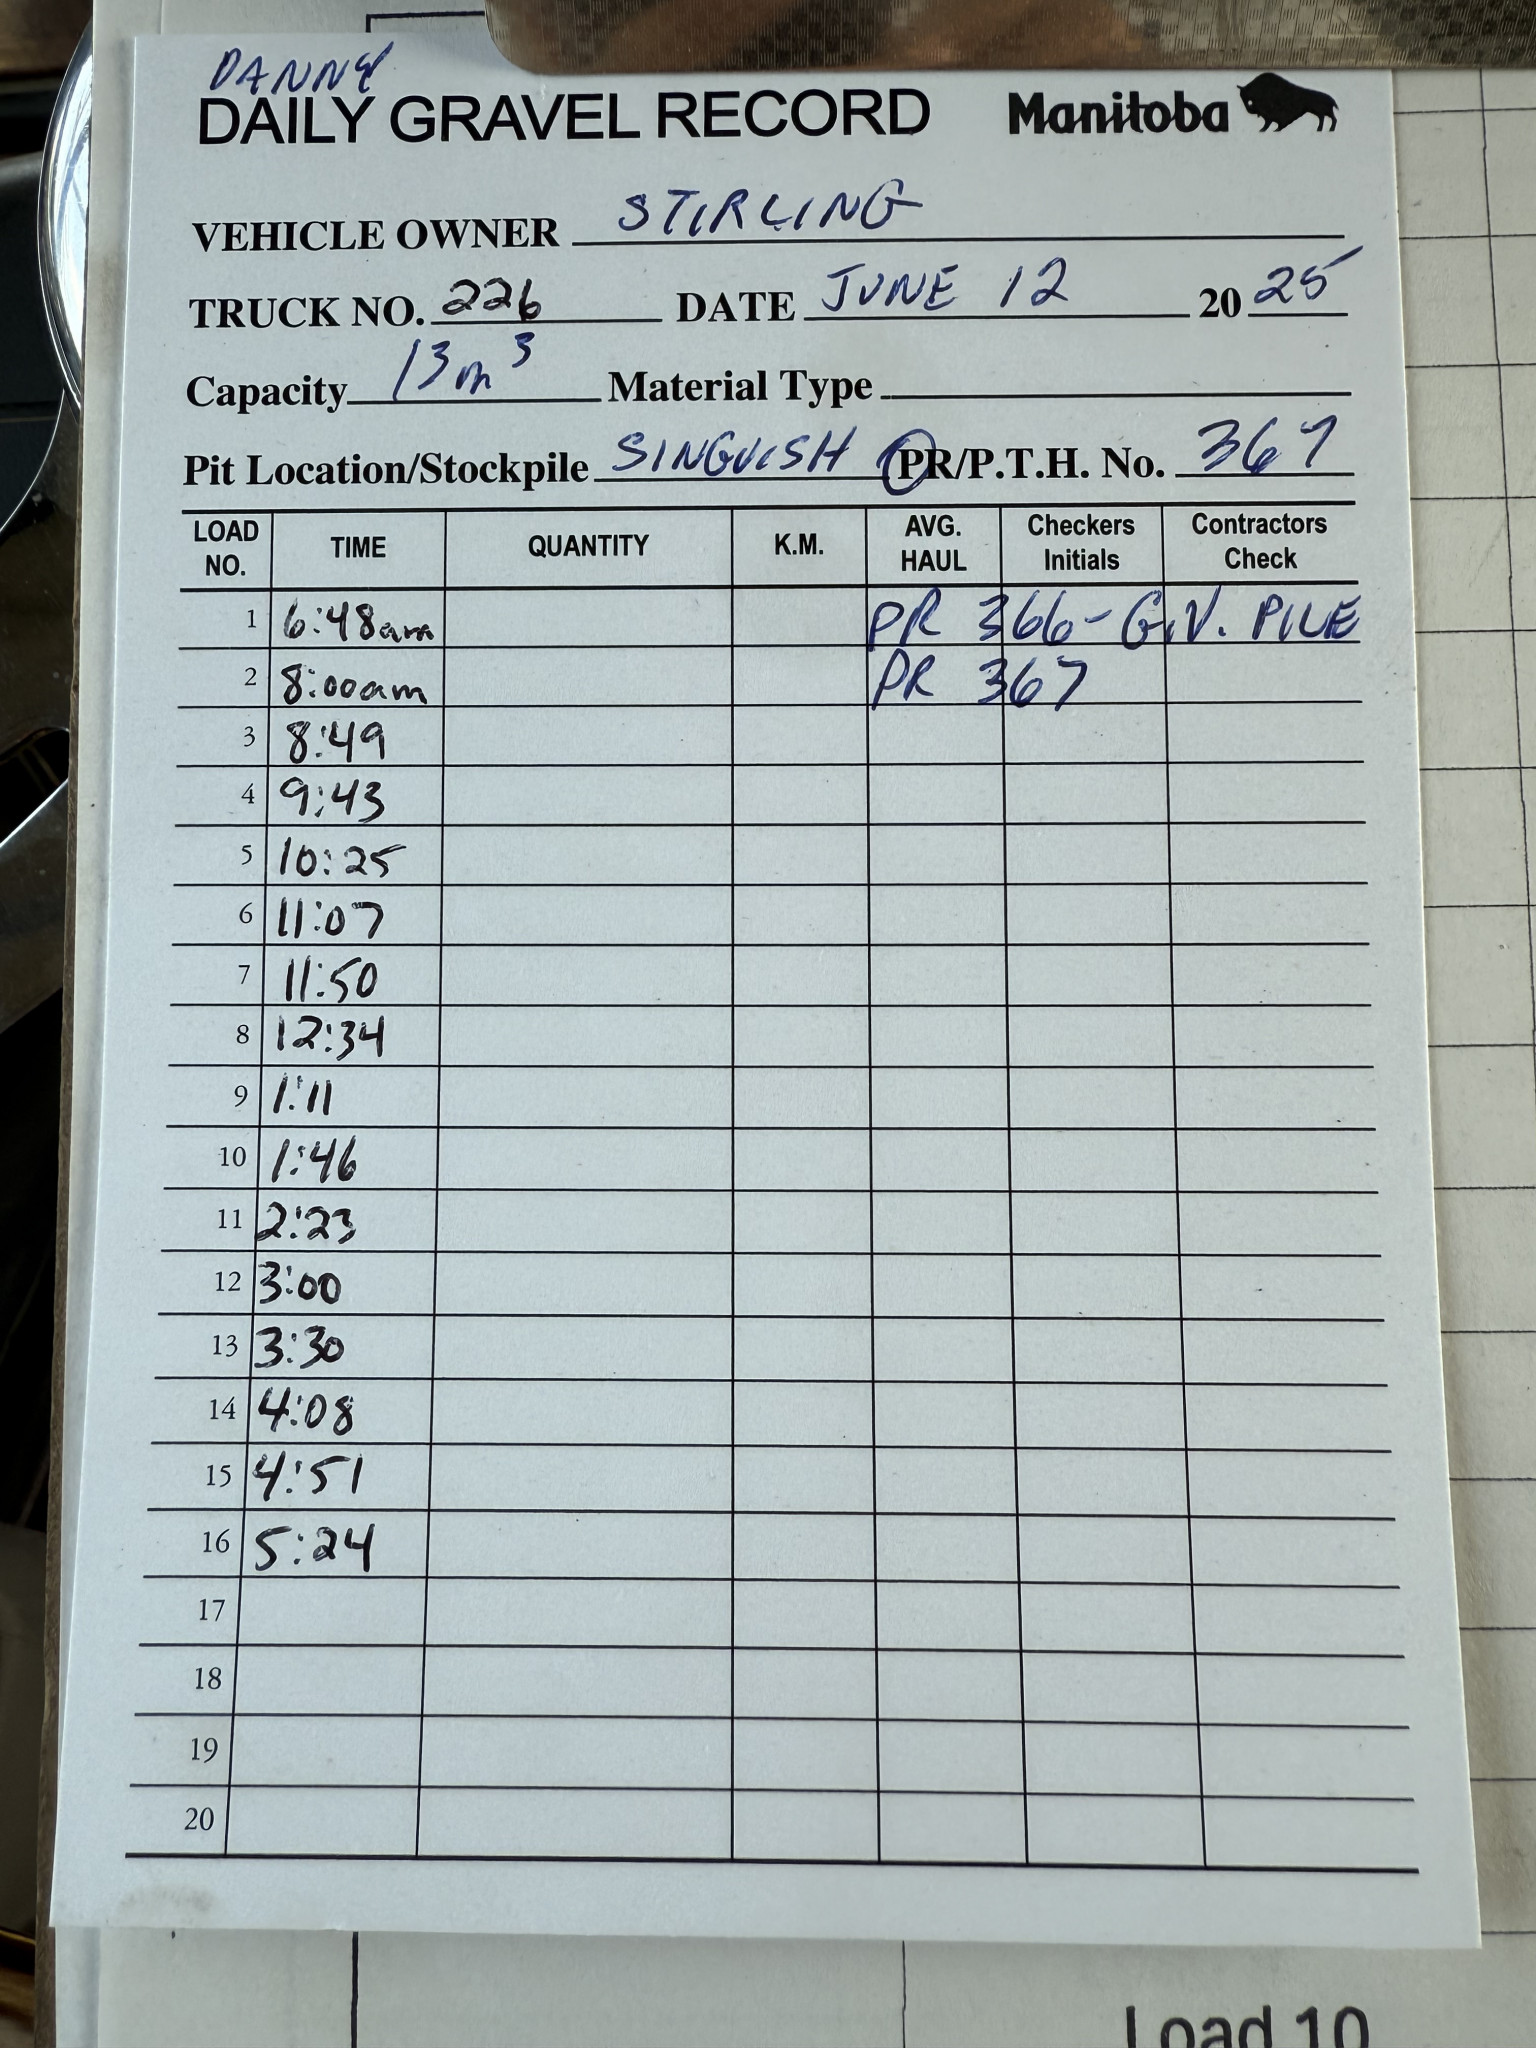 DANNY
DAILY GRAVEL RECORD Manitoba
VEHICLE OWNER STIRLING
TRUCK NO. 226 DATE JUNE 12 20 25
Capacity 13m³ Material Type
Pit Location/Stockpile SINGUISH PR/P.T.H. No. 367
LOAD NO. TIME QUANTITY K.M. AVG. HAUL Checkers Initials Contractors Check
1 6:48am PR 366-G.V. PILE
2 8:00am PR 367
3 8:49
4 9:43
5 10:25
6 11:07
7 11:50
8 12:34
9 1:11
10 1:46
11 2:23
12 3:00
13 3:30
14 4:08
15 4:51
16 5:24
17
18
19
20
Load 10